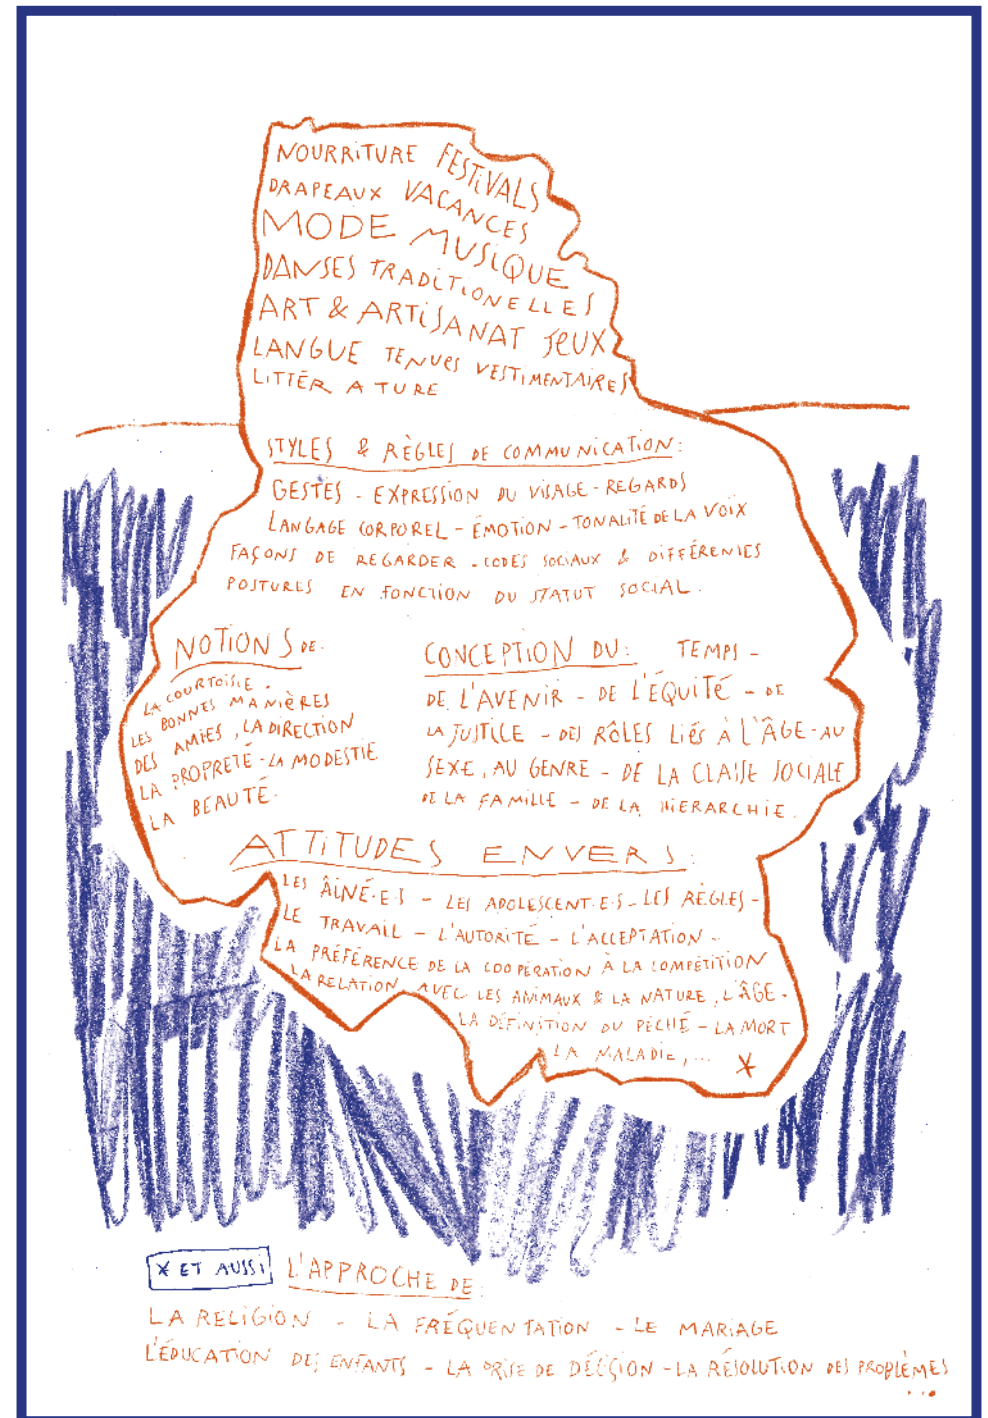 NOURRITURE FESTIVALS
DRAPEAUX VACANCES
MODE MUSIQUE
DANSES TRADITIONELLES
ART & ARTISANAT JEUX
LANGUE TENUES VESTIMENTAIRES
LITTÉRATURE
STYLES & RÈGLES DE COMMUNICATION:
GESTES - EXPRESSION DU VISAGE - REGARDS
LANGAGE CORPOREL - ÉMOTION - TONALITÉ DE LA VOIX
FAÇONS DE REGARDER - CODES SOCIAUX & DIFFÉRENTES
POSTURES EN FONCTION DU STATUT SOCIAL.
NOTIONS DE.
LA COURTOISIE -
LES BONNES MANIÈRES
DES AMIES, LA DIRECTION
LA PROPRETÉ - LA MODESTIE
LA BEAUTÉ.
CONCEPTION DU: TEMPS -
DE L'AVENIR - DE L'ÉQUITÉ - DE
LA JUSTICE - DES RÔLES LIÉS À L'ÂGE - AU
SEXE, AU GENRE - DE LA CLASSE SOCIALE
DE LA FAMILLE - DE LA HIERARCHIE.
ATTITUDES ENVERS:
LES ÂINÉ·E·S - LES ADOLESCENT·E·S - LES RÈGLES -
LE TRAVAIL - L'AUTORITÉ - L'ACCEPTATION -
LA PRÉFÉRENCE DE LA COOPÉRATION À LA COMPÉTITION
LA RELATION AVEC LES ANIMAUX & LA NATURE, L'ÂGE -
LA DÉFINITION DU PÉCHÉ - LA MORT
LA MALADIE, ... *
* ET AUSSI L'APPROCHE DE:
LA RELIGION - LA FRÉQUENTATION - LE MARIAGE
L'ÉDUCATION DES ENFANTS - LA PRISE DE DÉCISION - LA RÉSOLUTION DES PROBLÈMES
...